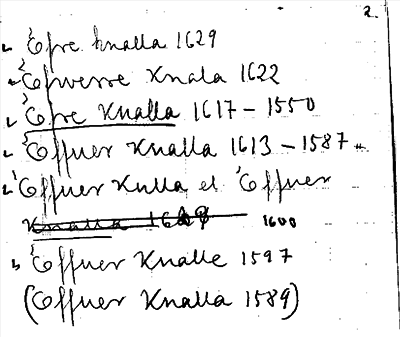 2.
Öfre Knalla 1629
Öfwerre Knala 1622
Öfre Knalla 1617 - 1550
Öffuer Knalla 1613 - 1587
Öffuer Kulla el Öffuer
Knalla 1600
Öffuer Knalle 1597
(Öffuer Knalla 1589)